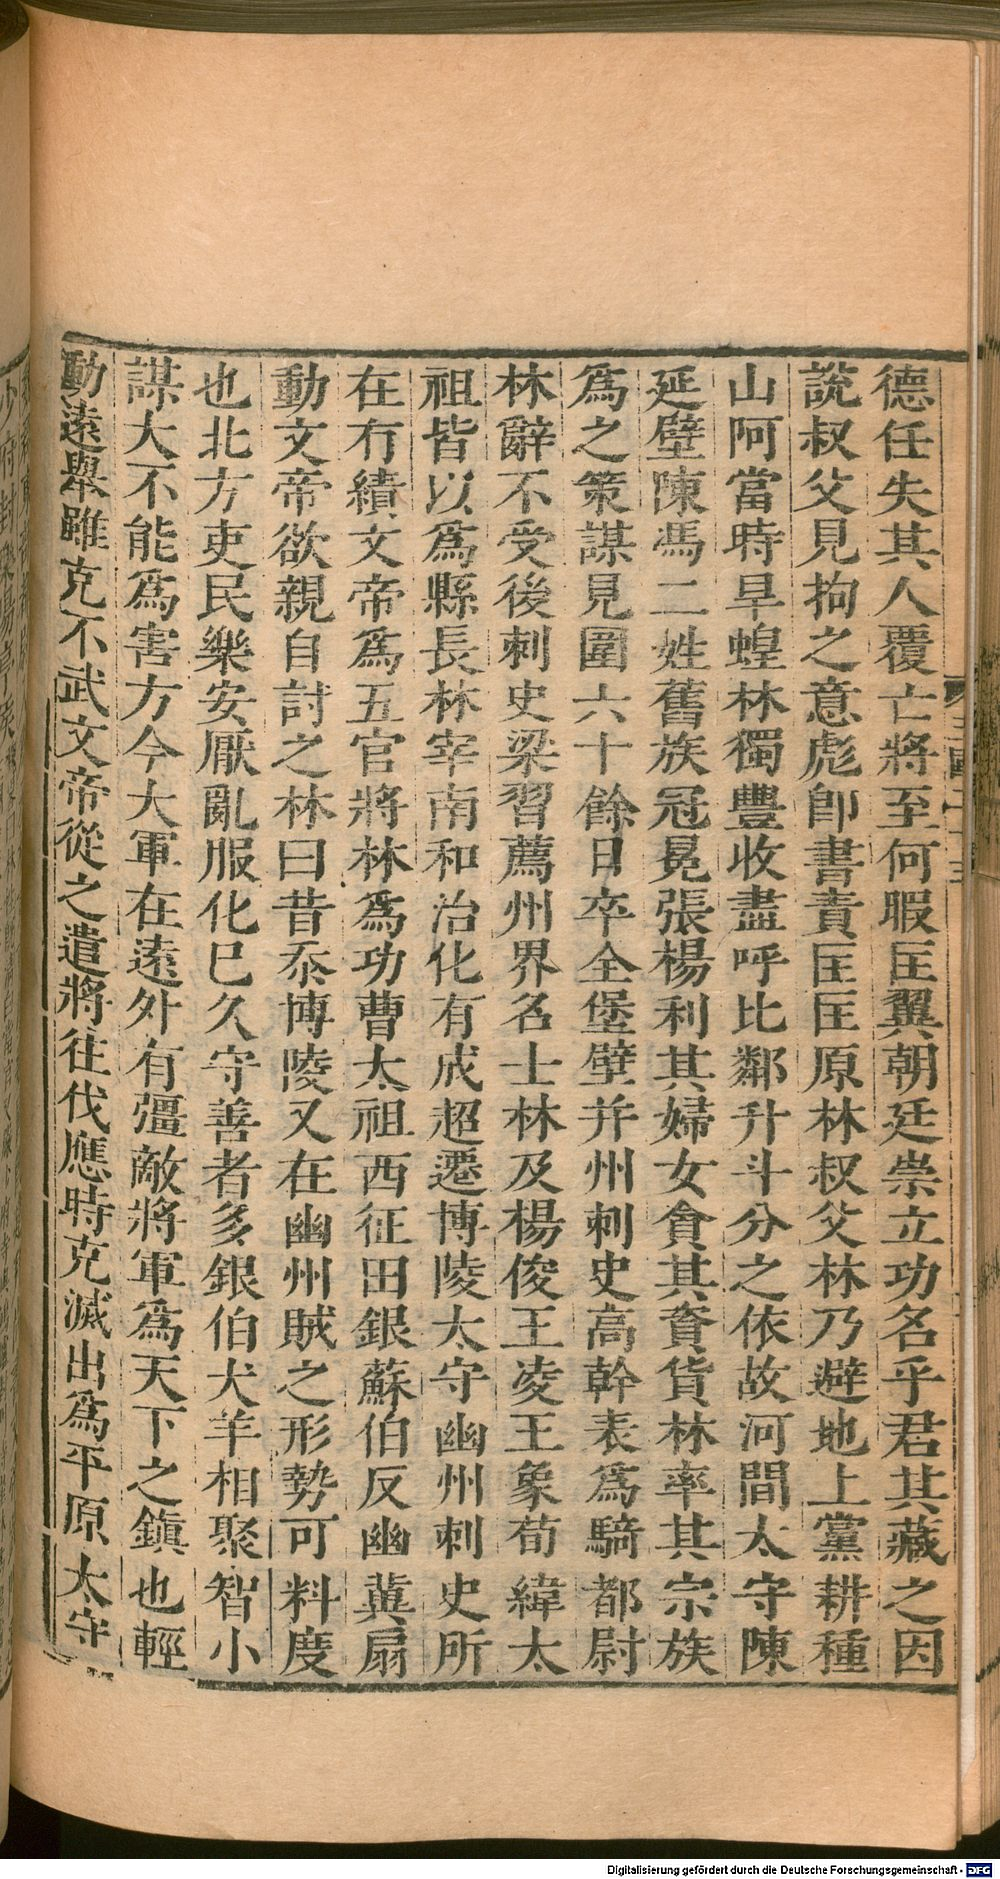 德任失其人覆亡將至何暇匡翼朝廷崇立功名乎君其藏之因
說叔父見拘之意彪卽書責匡匡原林叔父林乃避地上黨耕種
山阿當時旱蝗林獨豐收盡呼比鄰升斗分之依故河間太守陳
延壁陳馮二姓舊族冠冕張楊利其婦女貪其資貨林率其宗族
爲之策謀見圍六十餘日卒全堡壁并州刺史高幹表爲騎都尉
林辭不受後刺史梁習薦州界名士林及楊俊王凌王象荀緯太
祖皆以爲縣長林宰南和治化有成超遷博陵太守幽州刺史所
在有績文帝爲五官將林爲功曹太祖西征田銀蘇伯反幽冀扇
動文帝欲親自討之林曰昔忝博陵又在幽州賊之形勢可料度
也北方吏民樂安厭亂服化已久守善者多銀伯犬羊相聚智小
謀大不能爲害方今大軍在遠外有彊敵將軍爲天下之鎭也輕
動遠舉雖克不武文帝從之遣將往伐應時克滅出爲平原太守
Digitalisierung gefördert durch die Deutsche Forschungsgemeinschaft - DFG